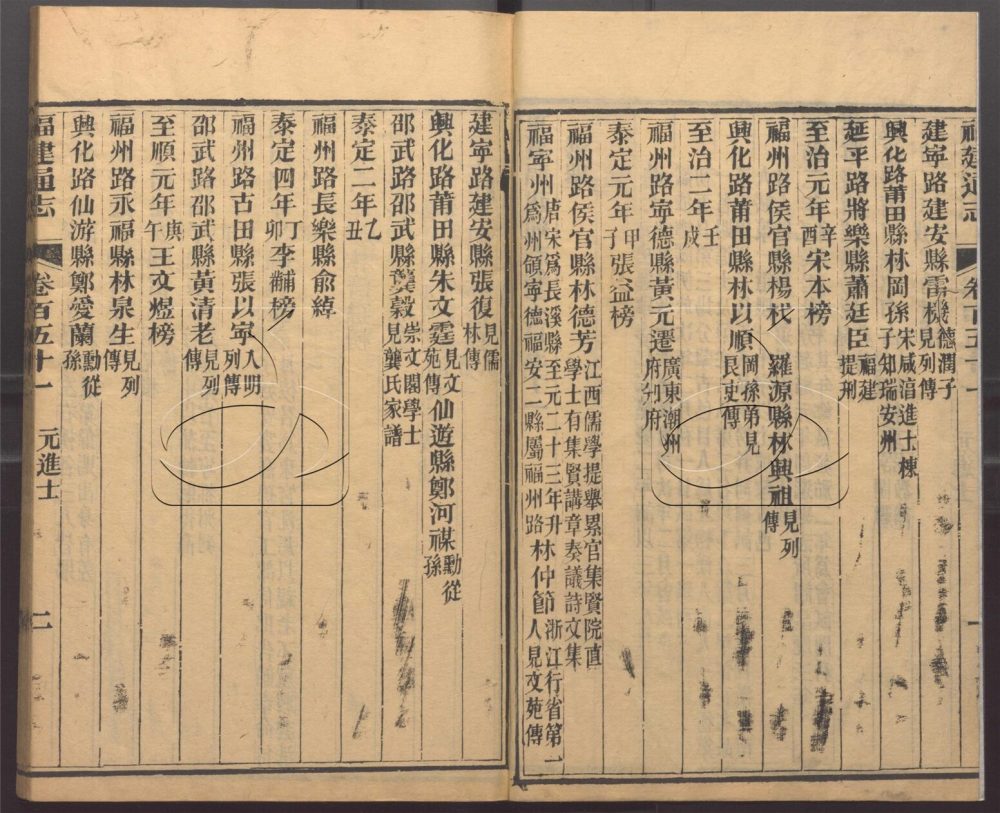 福建通志 卷百五十一
建寧路建安縣雷機德潤子見列傳
興化路莆田縣林岡孫宋咸淳進士棟子知瑞安州
延平路將樂縣蕭廷臣福建提刑
至治元年辛酉宋本榜
福州路侯官縣楊杖 羅源縣林興祖見列傳
興化路莆田縣林以順岡孫弟見良吏傳
至治二年壬戌
福州路寧德縣黃元遷廣東潮州府判府
泰定元年甲子張益榜
福州路侯官縣林德芳江西儒學提舉累官集賢院直學士有集賢講章奏議詩文集
福寧州唐宋為長溪縣至元二十三年升為州領寧德福安二縣屬福州路林仲節浙江行省第一人見文苑傳
建寧路建安縣張復見儒林傳
興化路莆田縣朱文霆見文苑傳仙遊縣鄭河謀勳從孫
邵武路邵武縣龔穀崇文閣學士見龔氏家譜
泰定二年乙丑
福州路長樂縣俞綽
泰定四年丁卯李黼榜
福州路古田縣張以寧入明列傳
邵武路邵武縣黃清老見列傳
至順元年庚午王文煜榜
福州路永福縣林泉生見列傳
興化路仙游縣鄭愛蘭勳從孫
福建通志 卷百五十一 元進士 二